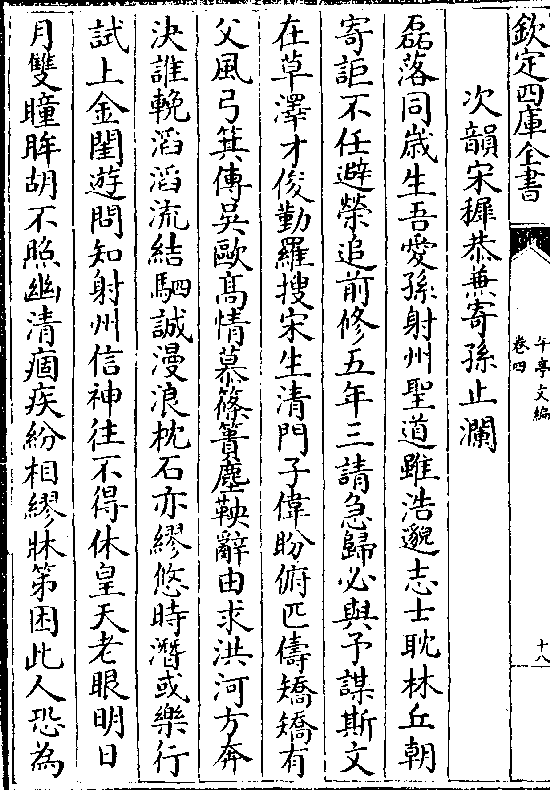 欽定四庫全書
午亭文編
卷四
十八
次韻宋穉恭兼寄孫止瀾
磊落同歲生吾愛孫射州聖道雖浩邈志士耽林丘朝
寄詎不任避榮追前修五年三請急歸必與予謀斯文
在草澤才俊勤羅搜宋生清門子偉盼俯匹儔矯矯有
父風弓箕傳吳歐高情慕篠簜塵鞅辭由求洪河方奔
決誰輓滔滔流結駟誠漫浪枕石亦繆悠時潛或樂行
試上金閨遊問知射州信神往不得休皇天老眼明日
月雙瞳眸胡不照幽清痼疾紛相繆牀第困此人恐為